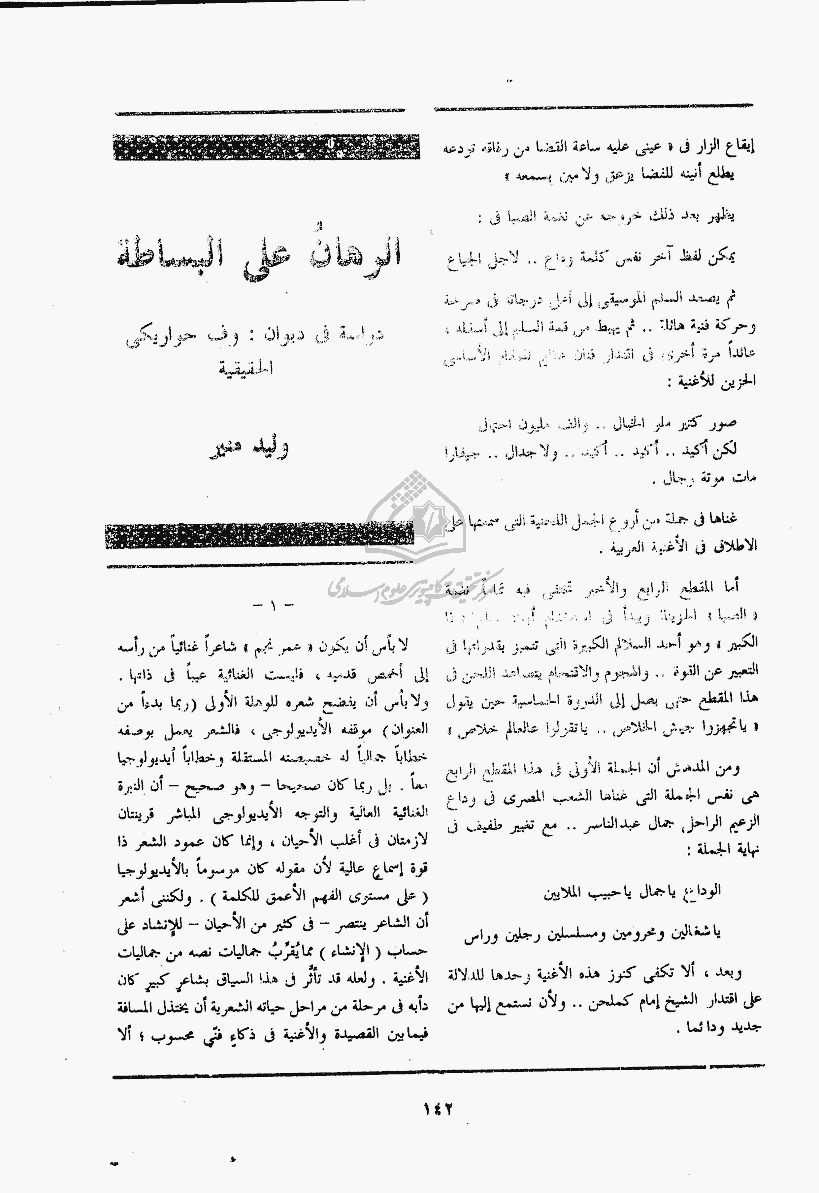 إيقاع الزار فى « عينى عليه ساعة القضا من رفاقه تودعه
يطلع أنينه للفضا يزعق ولا مين يسمعه »
يظهر بعد ذلك خروجه عن نغمة الصبا فى :
يمكن لفظ آخر نفس كلمة وداع .. لاجل الجياع
ثم يصعد السلم الموسيقى إلى أعلى درجاته فى
وحركة فنية هائلة .. ثم يهبط من قمة السلم إلى أسفله ،
عائداً مرة أخرى فى اقتدار فنان الأساسى
الحزين للأغنية :
صور كتير ملو الخيال .. والف مليون احتمال
لكن أكيد .. أكيد .. أكيد .. ولا جدال .. جيفارا
مات موتة رجال .
غناها فى جملة من أروع الجمل اللحنية التى سمعتها على
الاطلاق فى الأغنية العربية .
أما المقطع الرابع والأخير تختفى فيه تماماً نغمة
« الصبا » الحزينة ويبدأ فى استخدام
الكبير » وهو أحد السلالم الكبيرة التى تتميز بقدراتها فى
التعبير عن القوة .. والهجوم والاقتحام يتصاعد اللحن فى
هذا المقطع حتى يصل إلى الذروة الحماسية حين يقول
« ياتجهزوا جيش الخلاص .. ياتقولوا عالعالم خلاص »
ومن المدهش أن الجملة الأولى فى هذا المقطع الرابع
هى نفس الجملة التى غناها الشعب المصرى فى وداع
الزعيم الراحل جمال عبدالناصر .. مع تغيير طفيف فى
نهاية الجملة :
الوداع ياجمال ياحبيب الملايين
ياشغالين ومحرومين ومسلسلين رجلين وراس
وبعد ، ألا تكفى كنوز هذه الأغنية وحدها للدلالة
على اقتدار الشيخ إمام كملحن .. ولأن نستمع إليها من
جديد ودائما .
الرهانُ على البساطة
دراسة فى ديوان : وف حواريكى
الحقيقية
وليد منير
مرکز تحقیقات کامپیوتری علوم اسلامی
– ١ –
لا بأس أن يكون « عمر نجم » شاعراً غنائياً من رأسه
إلى أخمص قدميه ، فليست الغنائية عيباً فى ذاتها .
ولا بأس أن يفضح شعره للوهلة الأولى (ربما بدءاً من
العنوان) موقفه الأيديولوجى ، فالشعر يعمل بوصفه
خطاباً جمالياً له خصيصته المستقلة وخطاباً أيديولوجيا
معاً . بل ربما كان صحيحا – وهو صحيح – أن النبرة
الغنائية العالية والتوجه الأيديولوجى المباشر قرينتان
لازمتان فى أغلب الأحيان ، وإنما كان عمود الشعر ذا
قوة إسماعٍ عالية لأن مقوله كان موسوماً بالأيديولوجيا
( على مستوى الفهم الأعمق للكلمة ) . ولكننى أشعر
أن الشاعر ينتصر – فى كثير من الأحيان – للإنشاد على
حساب ( الإنشاء ) مما يُقَرِّبُ جماليات نصه من جماليات
الأغنية . ولعله قد تأثَّر فى هذا السياق بشاعرٍ كبيرٍ كان
دأبه فى مرحلة من مراحل حياته الشعرية أن يختذل المسافة
فيمابين القصيدة والأغنية فى ذكاءٍ فنّى محسوب ؛ ألا
١٤٢